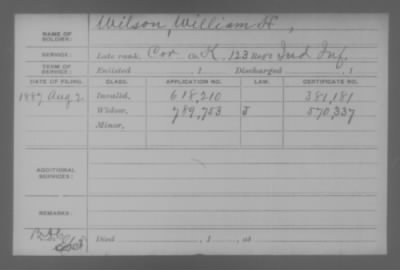 NAME OF SOLDIER: Wilson, William H,
SERVICE: Late rank, Cor Co. K, 123 Reg't Ind Inf.
TERM OF SERVICE: Enlisted , 1 Discharged , 1
DATE OF FILING. CLASS. APPLICATION NO. LAW. CERTIFICATE NO.
1887 Aug 2 Invalid, 618,210 381,181
Widow, 789,753 J 570,337
Minor,
ADDITIONAL SERVICES:
REMARKS:
Died , 1 , at